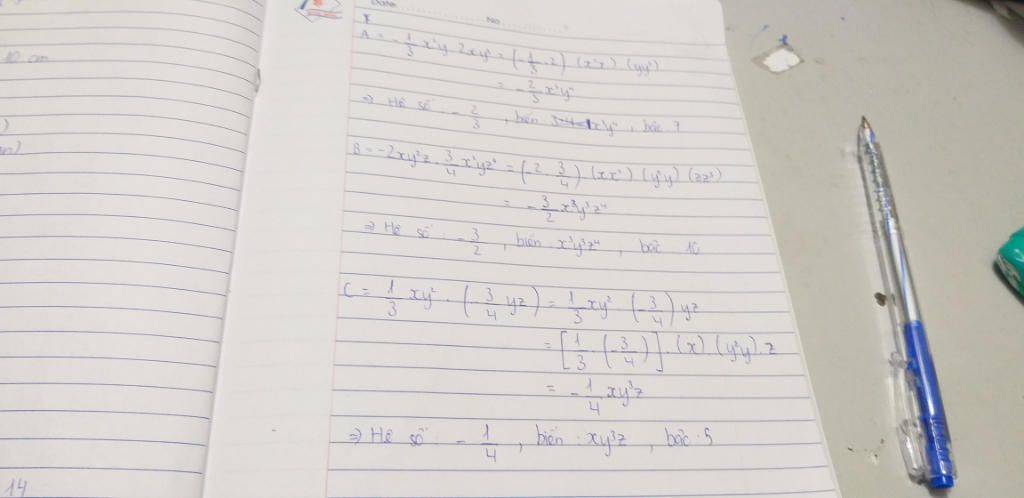 10 cm
)
an)
14
Date
No
A = -1/3 x²y · 2xy³ = (-1/3 · 2) (x²x) (yy³)
= -2/3 x³y⁴
=> Hệ số: -2/3, biến: x³y⁴, bậc: 7
B = -2xy²z · 3/4 x²yz³ = (-2 · 3/4) (xx²) (y²y) (zz³)
= -3/2 x³y³z⁴
=> Hệ số: -3/2, biến: x³y³z⁴, bậc 10
C = 1/3 xy² · (-3/4 yz) = 1/3 xy² · (-3/4) yz
= [1/3 · (-3/4)] · (x) · (y²y) · z
= -1/4 xy³z
=> Hệ số: -1/4, biến: xy³z, bậc: 5